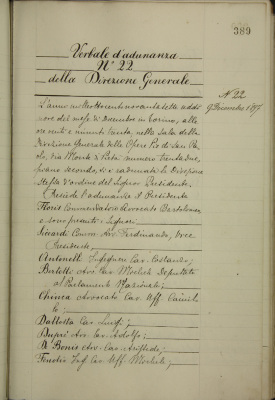 389
Verbale d'adunanza
N° 22
della Direzione Generale
N. 22
9 Dicembre 1897
L'anno mille ottocento novantasette addì
nove del mese di Dicembre in Torino, alle
ore venti e minuti trenta, nella Sala della
Direzione Generale delle Opere Pie di San Pa-
olo, via Monte di Pietà numero trentadue,
piano secondo, si è radunata la Direzione
stessa d'ordine del Signor Presidente.
Presiede l'adunanza il Presidente
Floris Commendatore Avvocato Bartolomeo
e sono presenti i Signori
Siccardi Comm. Avv. Ferdinando, Vice
Presidente
Antonelli Ingegnere Cav. Costanzo;
Bertetti Avv. Cav. Michele Deputato
al Parlamento Nazionale;
Chiesa Avvocato Cav. Uff. Camil-
lo;
Dallosta Cav. Luigi;
Dupré Avv. Cav. Adolfo;
De Bonis Avv. Cav. Aristide;
Fenolio Ing. Cav. Uff. Michele;